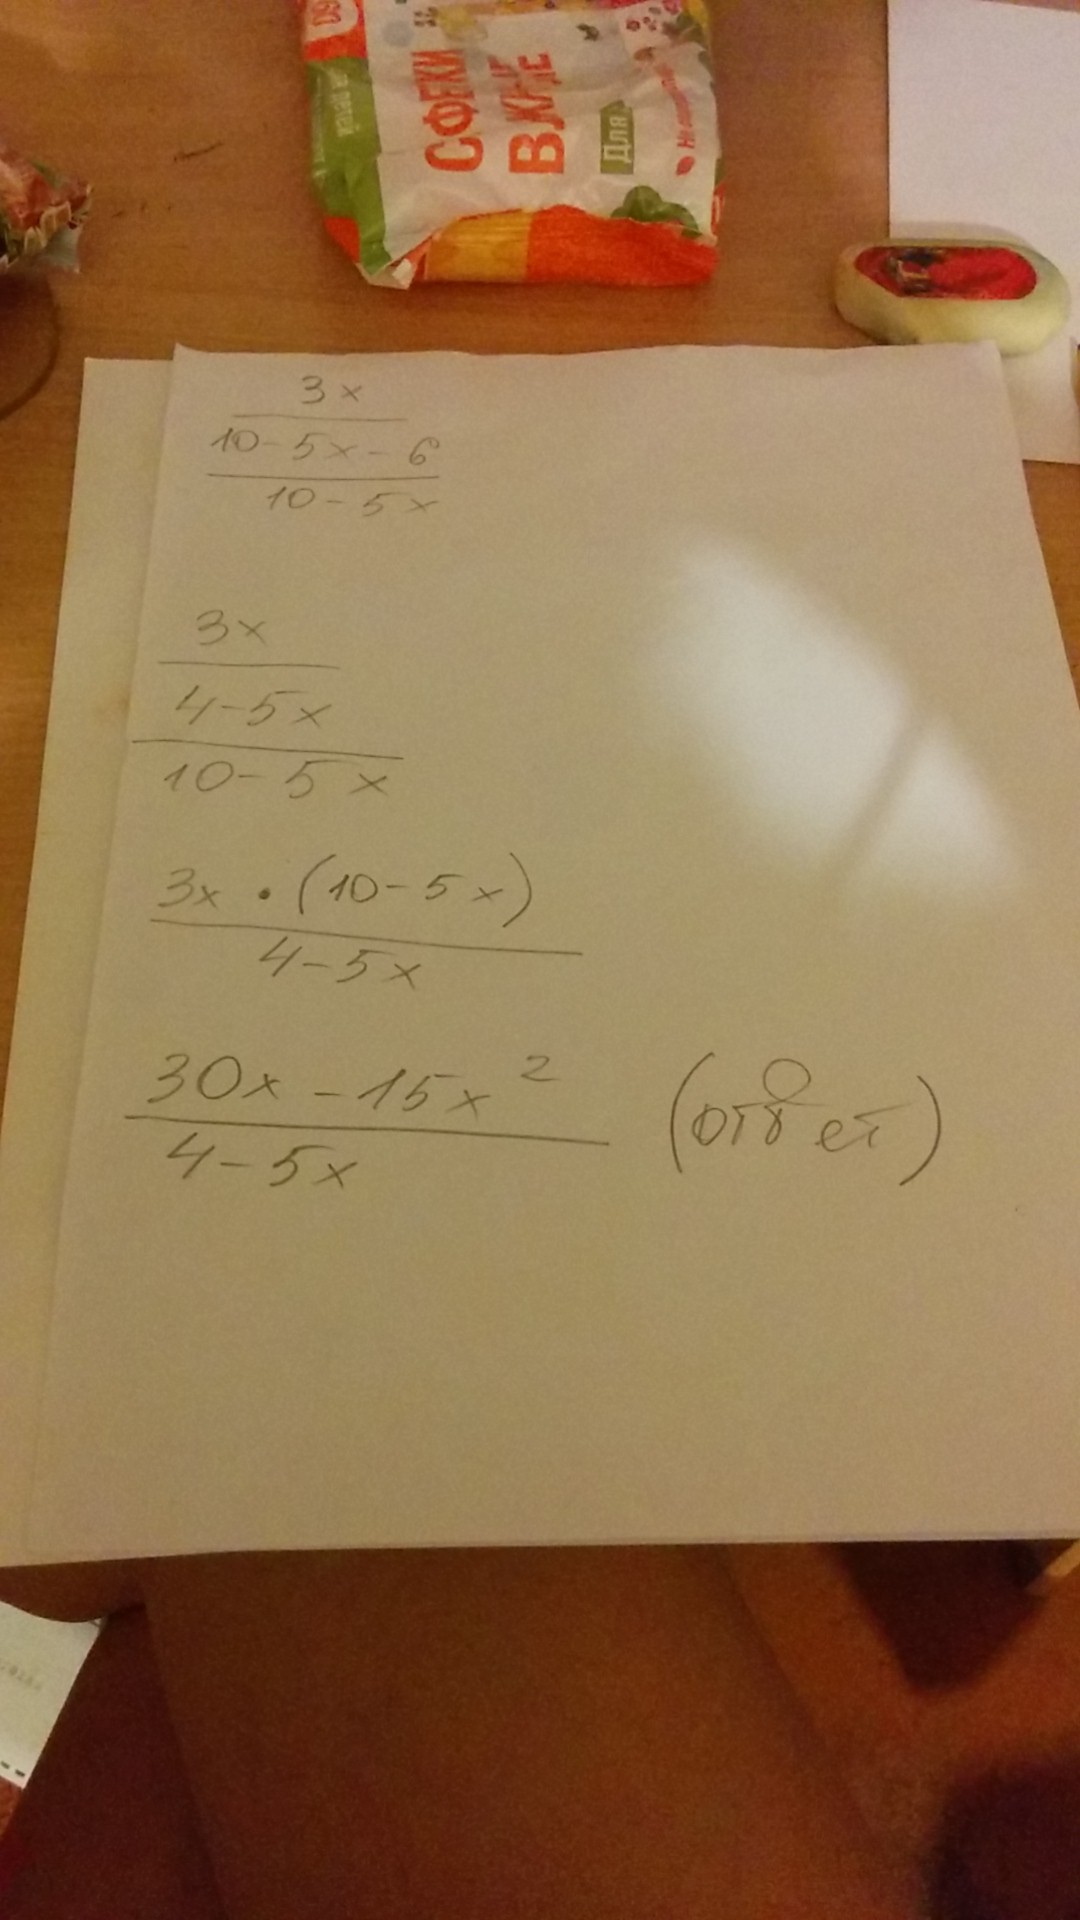 СФЕКИ
ВЖНЫЕ
Для
3x
10-5x-6
10-5x
3x
4-5x
10-5x
3x · (10-5x)
4-5x
30x-15x²
4-5x
(ответ)